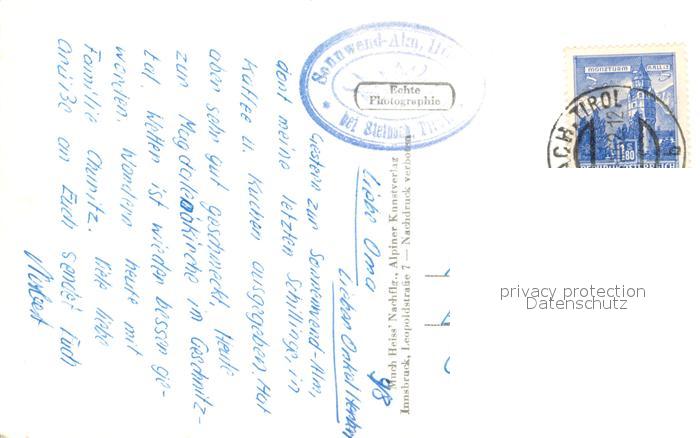 Liebe Oma
Lieber Onkel
Gestern zur Sonnwend-Alm,
dort meine letzten Schillinge, in
Kaffee u. Kuchen ausgegeben. Hat
aber sehr gut geschmeckt. Heute
zur Magdalenakirche im Geschnitz-
tal Wetter ist wieder besser ge-
worden. Wandern heute mit
Familie Viele liebe
Grüße an Euch sendet Euch
Sonnwend-Alm,
Echte
Photographie
bei Steinach, Tirol
Much Heiss' Nachflg., Alpiner Kunstverlag
Innsbruck, Leopoldstraße 7 — Nachdruck verboten
98
MÜNZTURM HALL i/T
S 1.80
REPUBLIK ÖSTERREICH
ACH, TIROL
12
b
privacy protection
Datenschutz